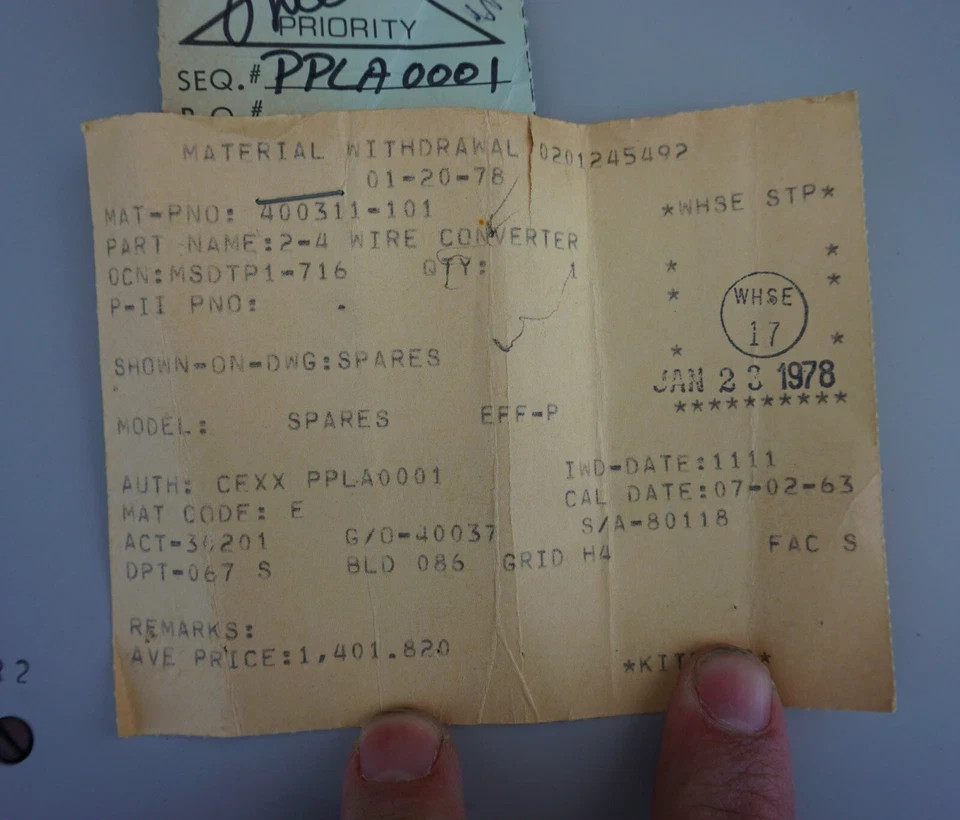 PRIORITY
SEQ.# PPLA0001
MATERIAL WITHDRAWAL 0201245492
01-20-78
MAT-PNO: 400311-101 *WHSE STP*
PART NAME:2-4 WIRE CONVERTER
OCN:MSDTP1-716 QTY: 1
P-II PNO: -
WHSE
17
SHOWN-ON-DWG:SPARES
JAN 23 1978
**********
MODEL: SPARES EFF-P
IWD-DATE:1111
AUTH: CEXX PPLA0001
CAL DATE:07-02-63
MAT CODE: E
S/A-80118
ACT-36201 G/O-40037
FAC S
DPT-067 S BLD 086 GRID H4
REMARKS:
AVE PRICE:1,401.820
*KIT